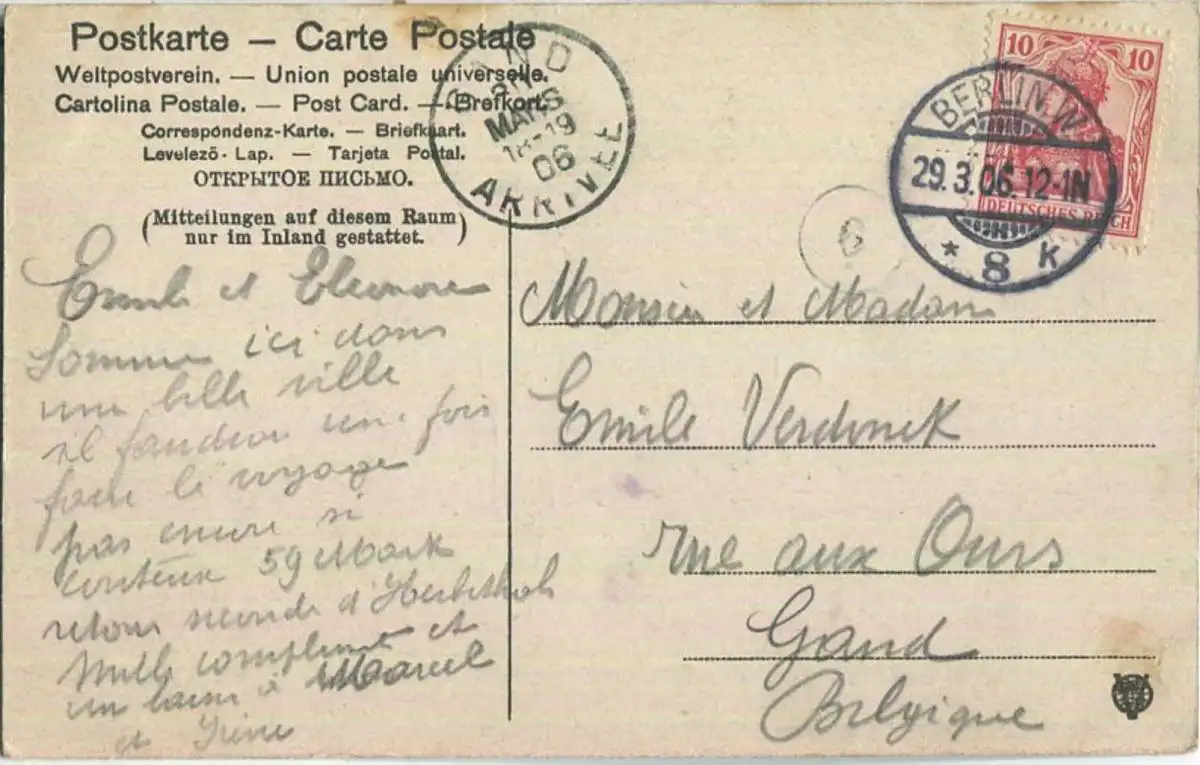 Postkarte — Carte Postale
Weltpostverein. — Union postale universelle.
Cartolina Postale. — Post Card. — Brefkort.
Correspondenz-Karte. — Briefkaart.
Levelező-Lap. — Tarjeta Postal.
ОТКРЫТОЕ ПИСЬМО.
(Mitteilungen auf diesem Raum
nur im Inland gestattet.)
GAND
MARS
18-19
06
ARRIVÉE
10 10
DEUTSCHES REICH
BERLIN. W.
29.3.06.12-1N
* 8 k
6
Emile et Eleonore
Somme ici dans
une belle ville
il faudra une fois
faire le voyage
pas encore si
couteux 59 Mark
retour seconde d'Herbesthal
Mille compliment et
un baiser à Marcel
et Irène
Monsieur et Madame
Emile Verdonck
rue aux Ours
Gand
Belgique